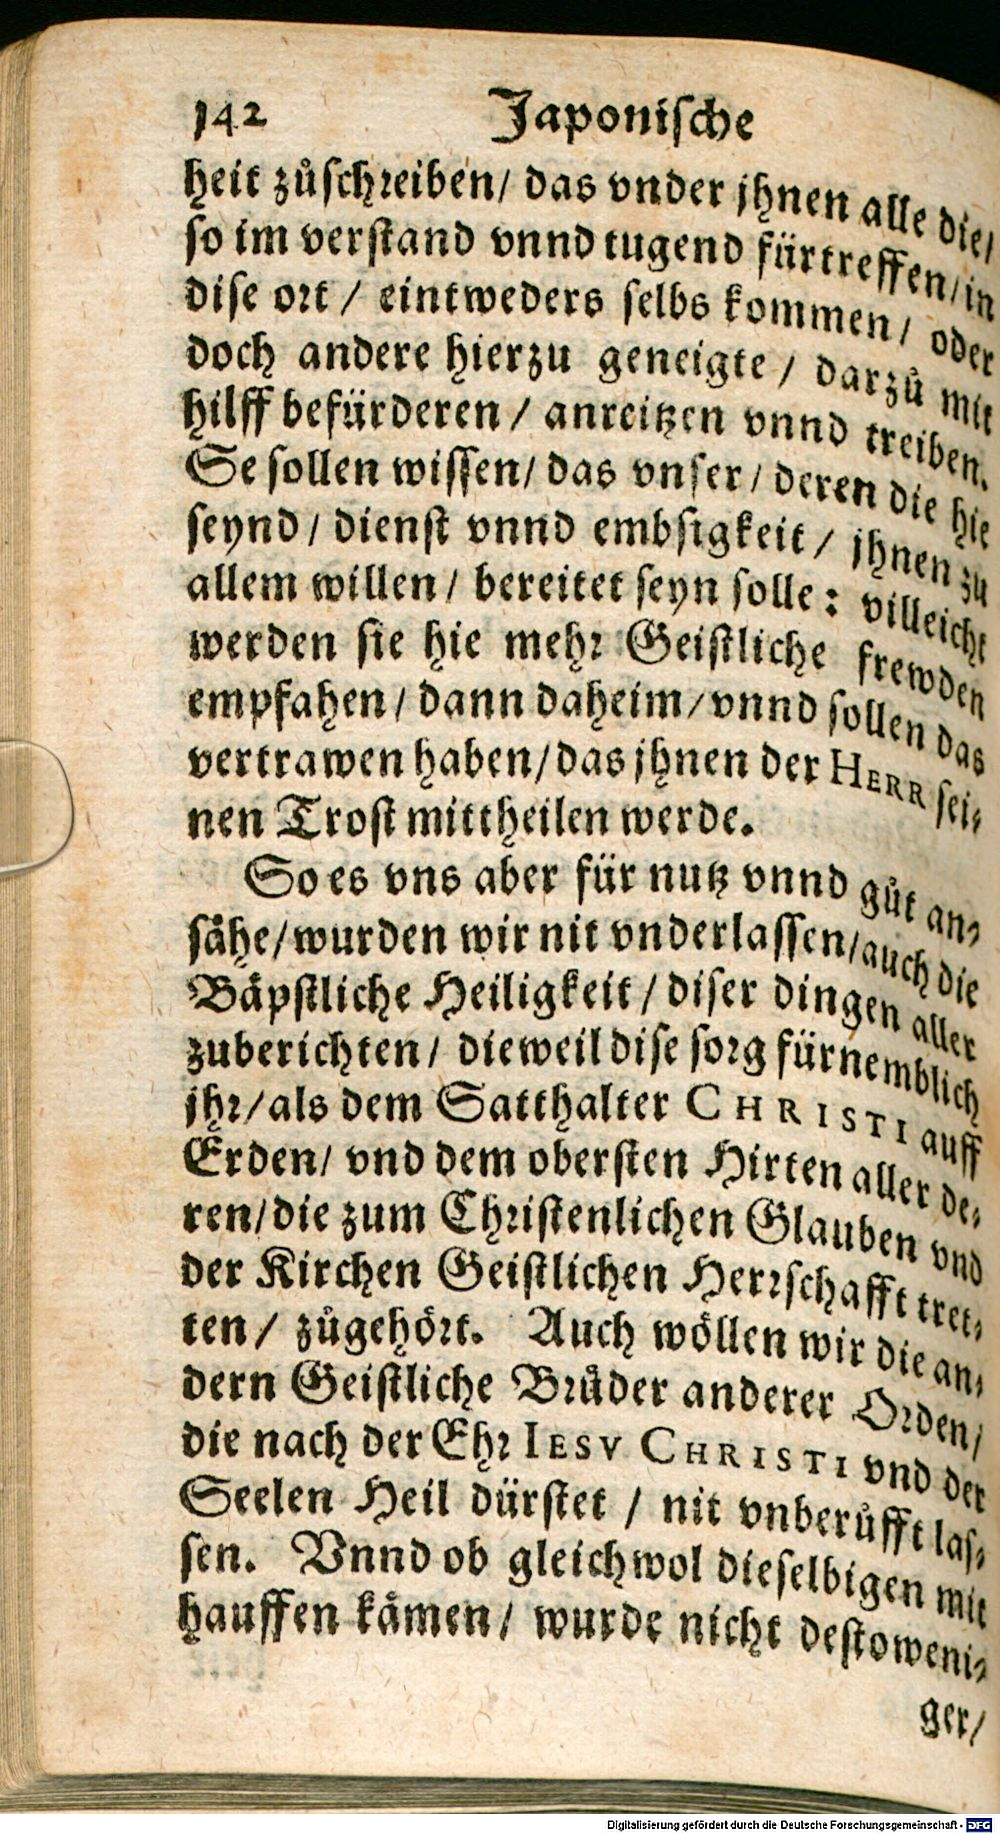 142 Japonische
heit zůschreiben/ das vnder jhnen alle die/
so im verstand vnnd tugend fürtreffen/in
dise ort / eintweders selbs kommen / oder
doch andere hierzu geneigte / darzů mit
hilff befürderen / anreitzen vnnd treiben.
Se sollen wissen/ das vnser / deren die hie
seynd / dienst vnnd embsigkeit / jhnen zu
allem willen / bereitet seyn solle: villeicht
werden sie hie mehr Geistliche frewden
empfahen / dann daheim / vnnd sollen das
vertrawen haben/das jhnen der HERR sei-
nen Trost mittheilen werde.
So es vns aber für nutz vnnd gůt an-
sähe/wurden wir nit vnderlassen/auch die
Bäpstliche Heiligkeit / diser dingen aller
zuberichten / dieweil dise sorg fürnemblich
jhr/als dem Satthalter CHRISTI auff
Erden/ vnd dem obersten Hirten aller de-
ren/die zum Christenlichen Glauben vnd
der Kirchen Geistlichen Herrschafft tret-
ten / zůgehört. Auch wöllen wir die an-
dern Geistliche Brůder anderer Orden/
die nach der Ehr IESV CHRISTI vnd der
Seelen Heil dürstet / nit vnberůfft las-
sen. Vnnd ob gleichwol dieselbigen mit
hauffen kämen / wurde nicht destoweni-
ger/
Digitalisierung gefördert durch die Deutsche Forschungsgemeinschaft - DFG